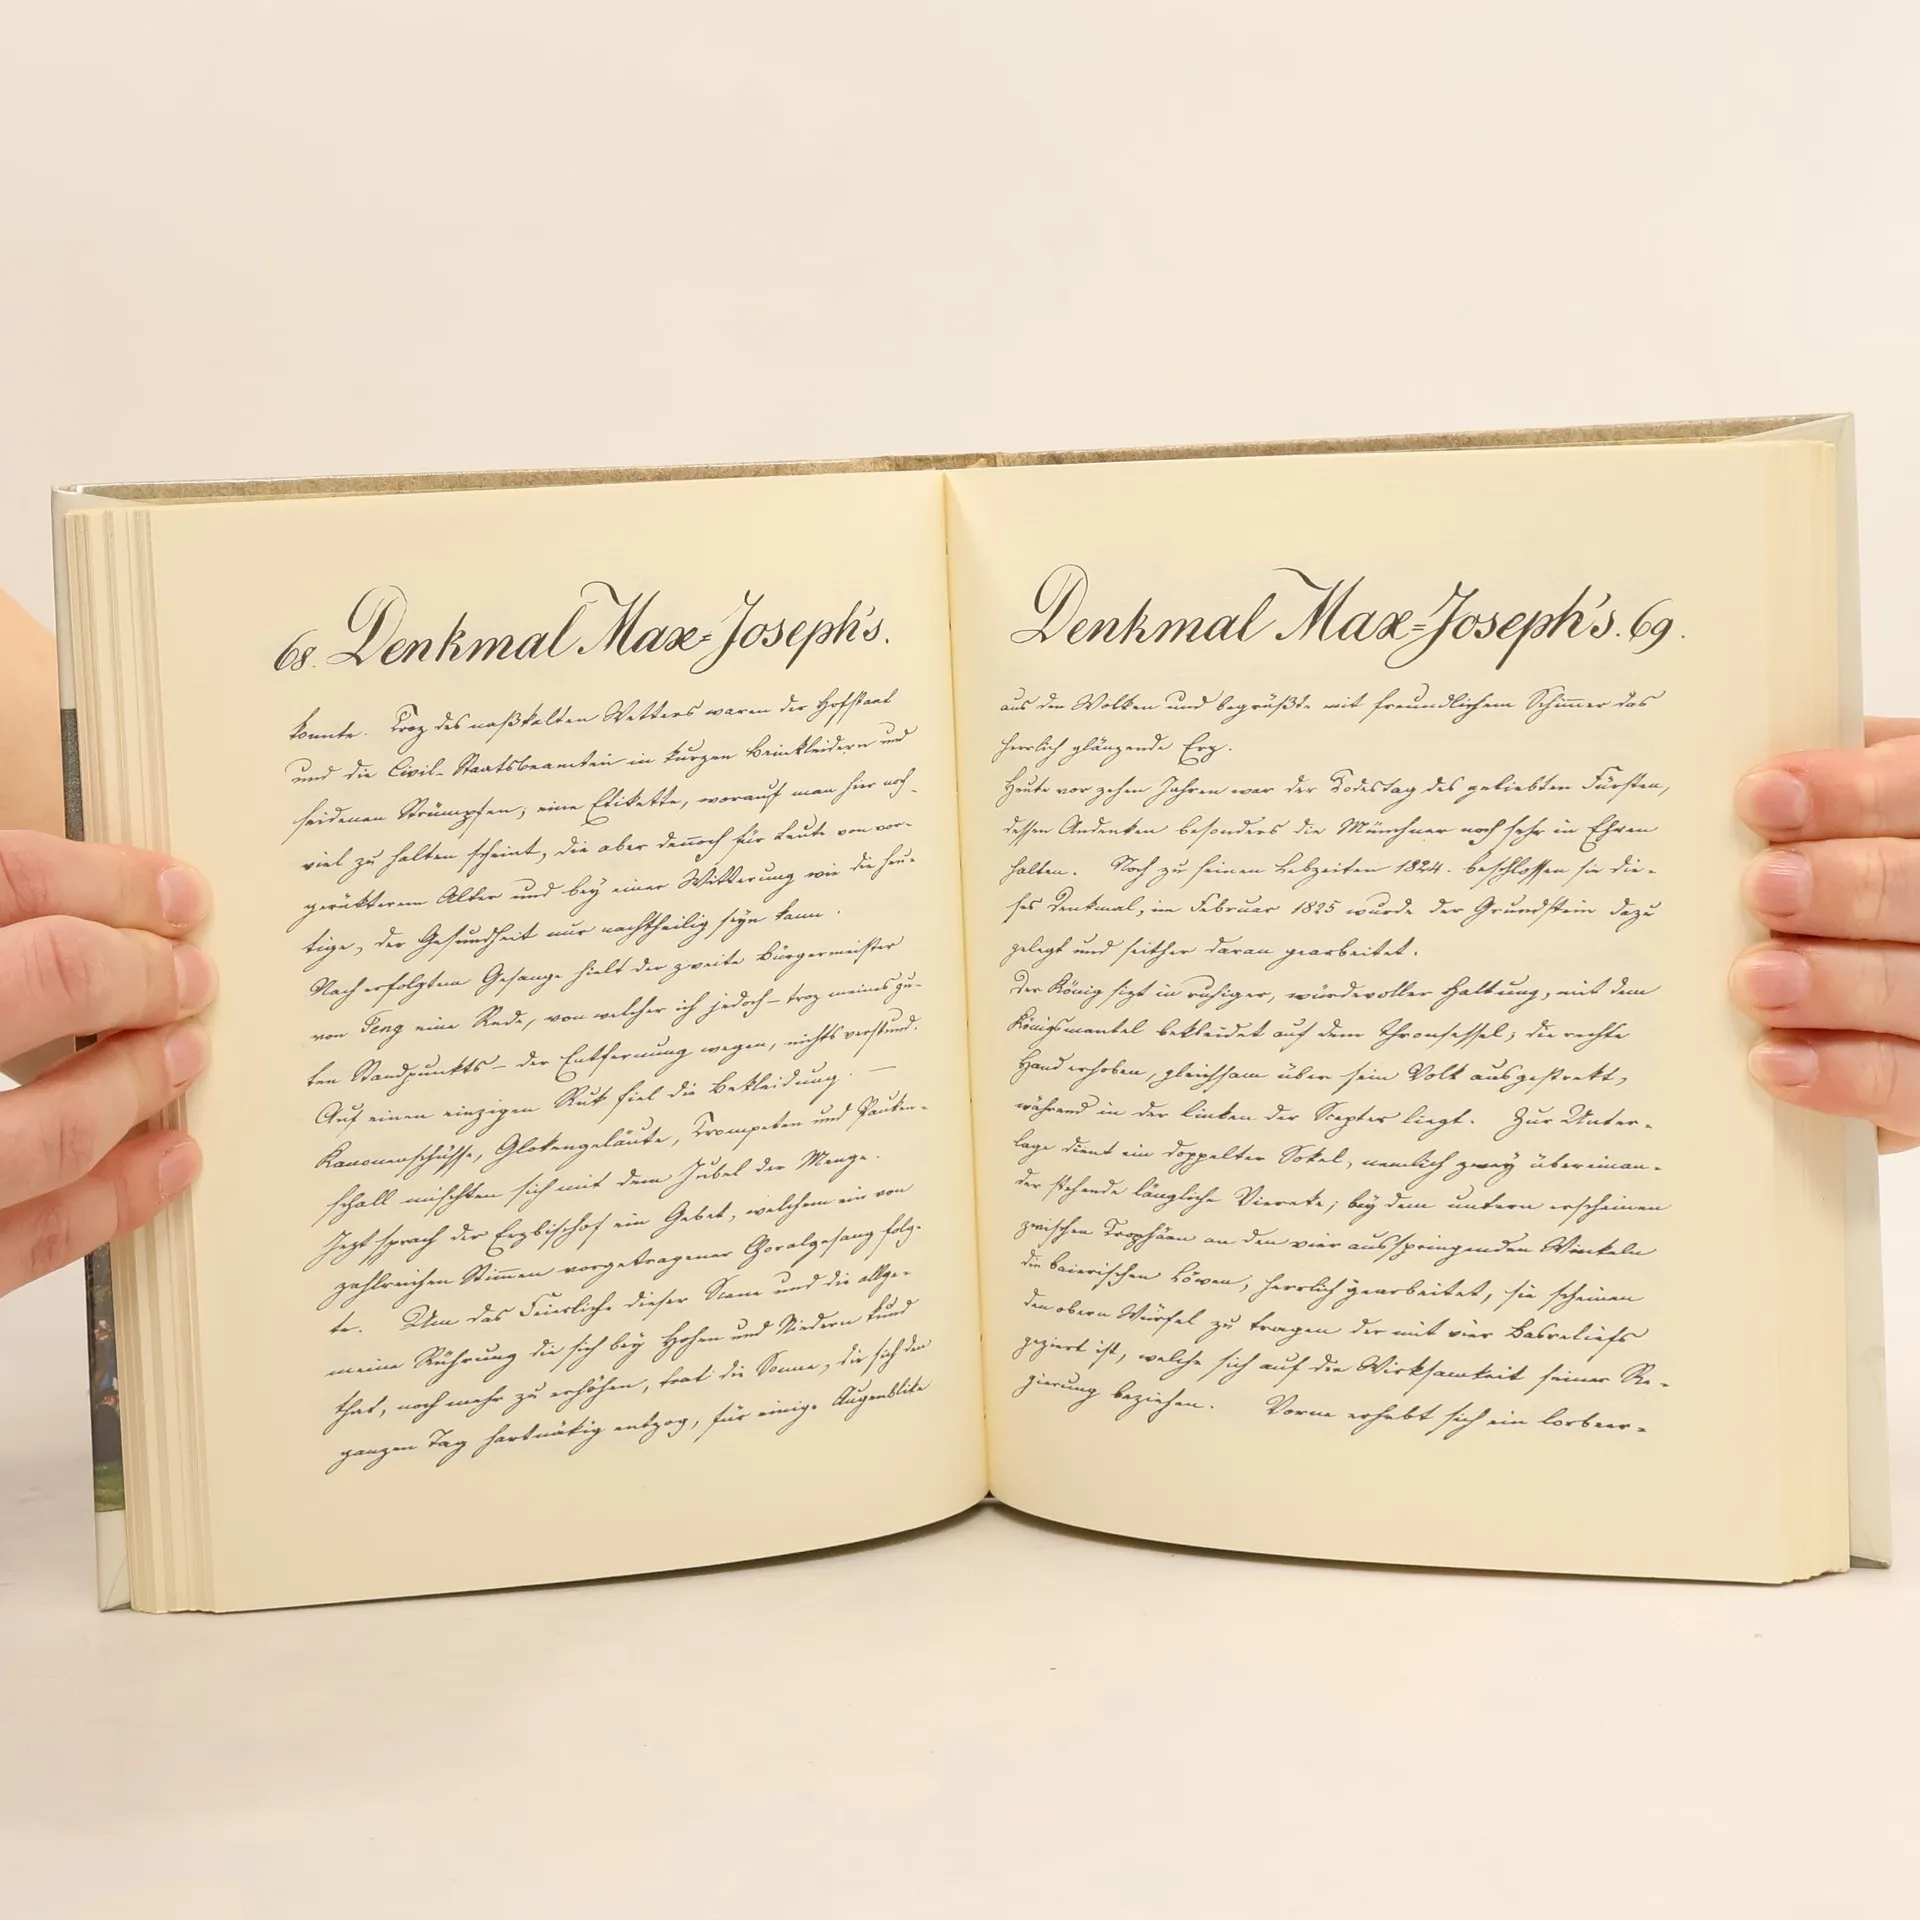 68. Denkmal Max=Joseph's.
konnte. Troz des naßkalten Wetters waren der Hofstaat
und die Civil-Staatsbeamten in kurzen Beinkleidern und
seidenen Strümpfen; eine Etikette, worauf man hier noch
viel zu halten scheint, die aber dennoch für Leute von vor-
gerükterem Alter und bey einer Witterung wie die heu-
tige, der Gesundheit nur nachtheilig seyn kann.
Nach erfolgtem Gesange hielt der zweite Bürgermeister
von Teng eine Rede, von welcher ich jedoch – troz meines gu-
ten Standpunkts – der Entfernung wegen, nichts verstund.
Auf einen einzigen Ruk fiel die Bekleidung. —
Kanonenschüsse, Glokengeläute, Trompeten und Pauken-
schall mischten sich mit dem Jubel der Menge.
Jezt sprach der Erzbischof ein Gebet, welchem ein von
zahlreichen Stimmen vorgetragener Choralgesang folg-
te. Um das Feierliche dieser Scene und die allge-
meine Rührung die sich bey Hohen und Niedern kund
that, noch mehr zu erhöhen, trat die Sonne, die sich den
ganzen Tag hartnäkig entzog, für einige Augenblike
Denkmal Max=Joseph's. 69.
aus den Wolken und begrüßte mit freundlichem Schimmer das
herrlich glänzende Erz.
Heute vor zehen Jahren war der Todestag des geliebten Fürsten,
dessen Andenken besonders die Münchner noch sehr in Ehren
halten. Noch zu seinen Lebzeiten 1824. beschlossen sie die-
ses Denkmal, im Februar 1825 wurde der Grundstein dazu
gelegt und seither daran gearbeitet.
Der König sizt in ruhiger, würdevoller Haltung, mit dem
Königsmantel bekleidet auf dem Thronsessel; die rechte
Hand erhoben, gleichsam über sein Volk ausgestrekt,
während in der linken der Scepter liegt. Zur Unter-
lage dient ein doppelter Sokel, nemlich zwey übereinan-
der stehende längliche Vierecke; bey dem untern erscheinen
zwischen Trophäen an den vier ausspringenden Winkeln
die baierischen Löwen, herrlich gearbeitet, sie scheinen
den obern Würfel zu tragen der mit vier Basreliefs
geziert ist, welche sich auf die Wirksamkeit seiner Re-
gierung beziehen. Vorne erhebt sich ein lorbeer-